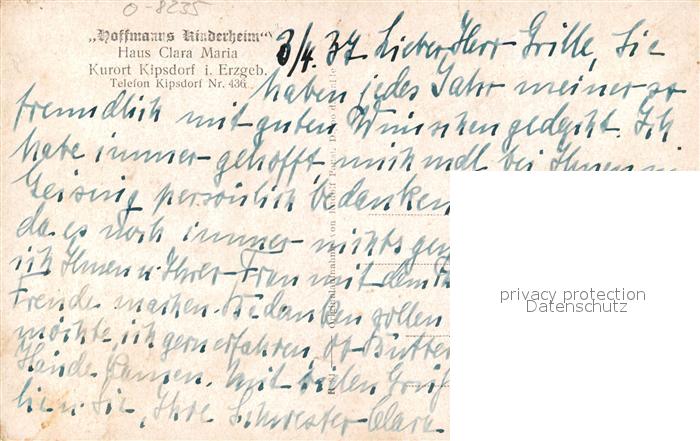 0-8235
„Hoffmanns Kinderheim“
Haus Clara Maria
Kurort Kipsdorf i. Erzgeb.
Telefon Kipsdorf Nr. 436
3/4. 37 Lieber Herr Grille, Sie
haben jedes Jahr meiner so
freundlich mit guten Wünschen gedacht. Ich
habe immer gehofft, mich mdl. bei Ihnen in
Geising persönlich bedanken
da es noch immer nichts
ich Ihnen u. Ihrer Frau mit dem
Freude machen. Bedanken sollen
möchte ich gern erfahren, ob Butter
Hände kamen. Mit vielen
Sie, Ihre Schwester Clara
privacy protection
Datenschutz